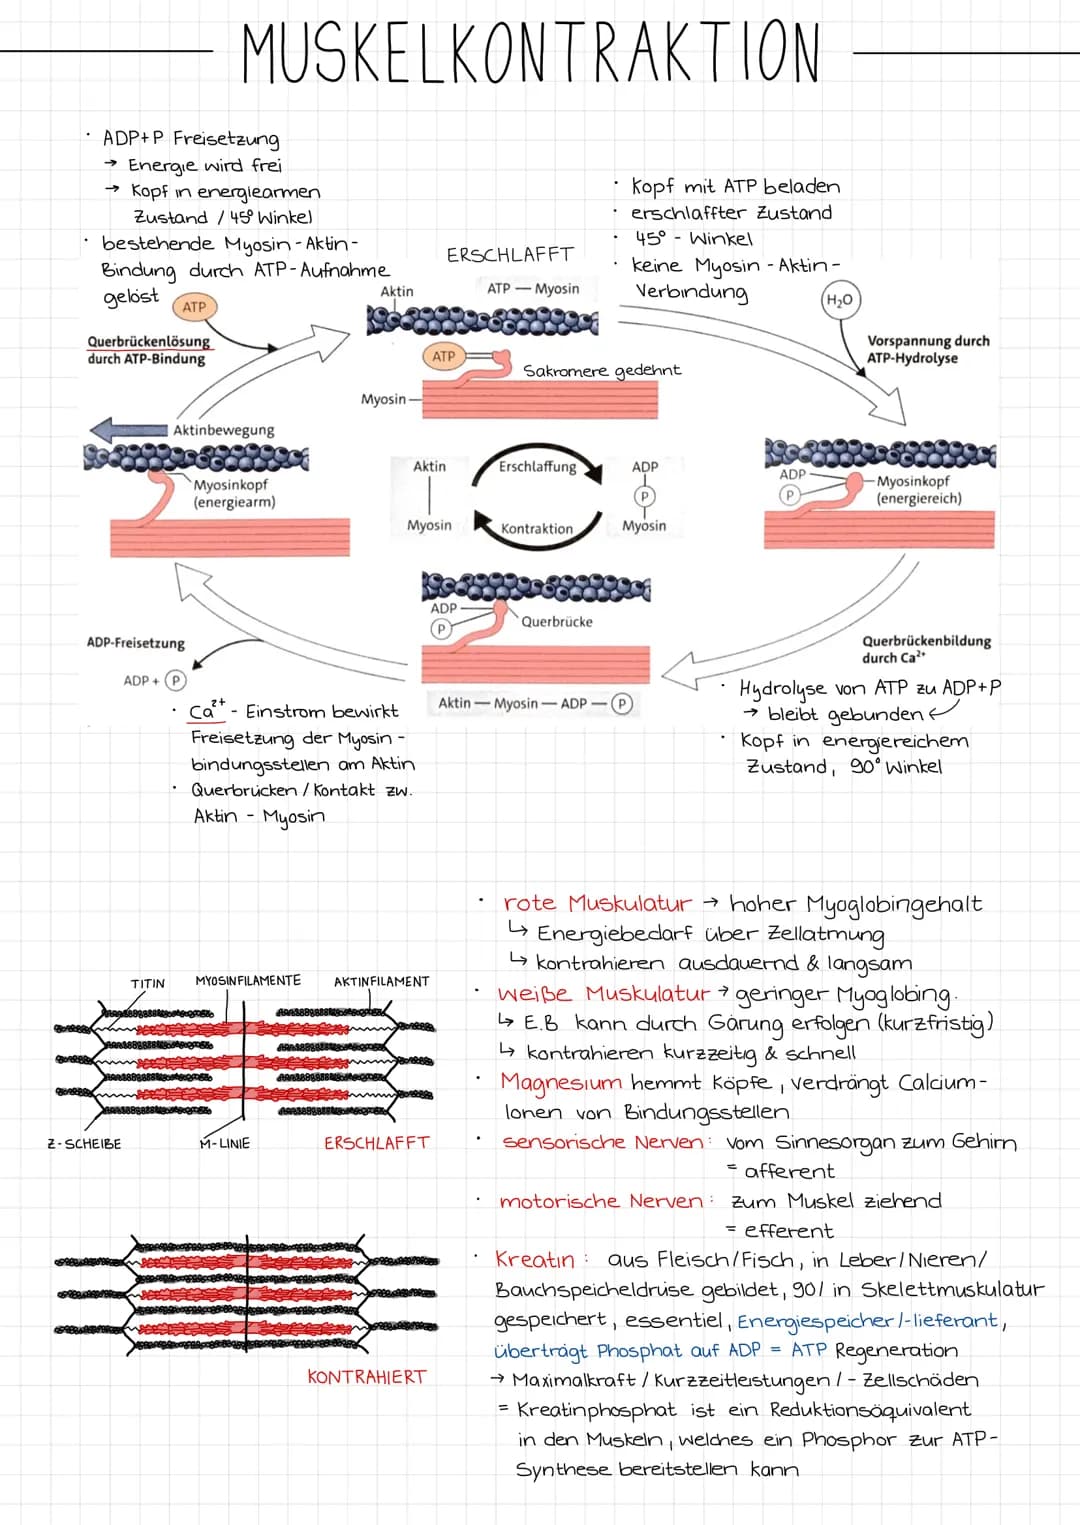 MUSKELKONTRAKTION
· ADP+P Freisetzung
→ Energie wird frei
→ Kopf in energiearmen
Zustand / 45° Winkel
· bestehende Myosin-Aktin-
Bindung durch ATP-Aufnahme
gelöst
ATP
Querbrückenlösung
durch ATP-Bindung
ERSCHLAFFT
Aktin
ATP — Myosin
ATP
Sakromere gedehnt
Myosin
· Kopf mit ATP beladen
· erschlaffter Zustand
· 45° - Winkel
· keine Myosin - Aktin -
Verbindung
H₂O
Vorspannung durch
ATP-Hydrolyse
Aktinbewegung
Myosinkopf
(energiearm)
Aktin
Myosin
Erschlaffung
Kontraktion
ADP
P
Myosin
ADP
P
Myosinkopf
(energiereich)
ADP
P
Querbrücke
Aktin — Myosin — ADP — P
ADP-Freisetzung
ADP + P
· Ca²⁺ - Einstrom bewirkt
Freisetzung der Myosin -
bindungsstellen am Aktin
· Querbrücken / Kontakt zw.
Aktin - Myosin
Querbrückenbildung
durch Ca²⁺
· Hydrolyse von ATP zu ADP+P
→ bleibt gebunden ←
· Kopf in energiereichem
Zustand, 90° Winkel
TITIN
MYOSINFILAMENTE
AKTINFILAMENT
Z-SCHEIBE
M-LINIE
ERSCHLAFFT
KONTRAHIERT
· rote Muskulatur → hoher Myoglobingehalt
↳ Energiebedarf über Zellatmung
↳ kontrahieren ausdauernd & langsam
· weiße Muskulatur → geringer Myoglobing.
↳ E.B kann durch Gärung erfolgen (kurzfristig)
↳ kontrahieren kurzzeitig & schnell
· Magnesium hemmt Köpfe, verdrängt Calcium-
Ionen von Bindungsstellen
· sensorische Nerven: vom Sinnesorgan zum Gehirn
= afferent
· motorische Nerven: zum Muskel ziehend
= efferent
· Kreatin: aus Fleisch/Fisch, in Leber/Nieren/
Bauchspeicheldrüse gebildet, 90/ in Skelettmuskulatur
gespeichert, essentiel, Energiespeicher/-lieferant,
überträgt Phosphat auf ADP = ATP Regeneration
→ Maximalkraft / Kurzzeitleistungen / - Zellschäden
= Kreatinphosphat ist ein Reduktionsäquivalent
in den Muskeln, welches ein Phosphor zur ATP-
Synthese bereitstellen kann